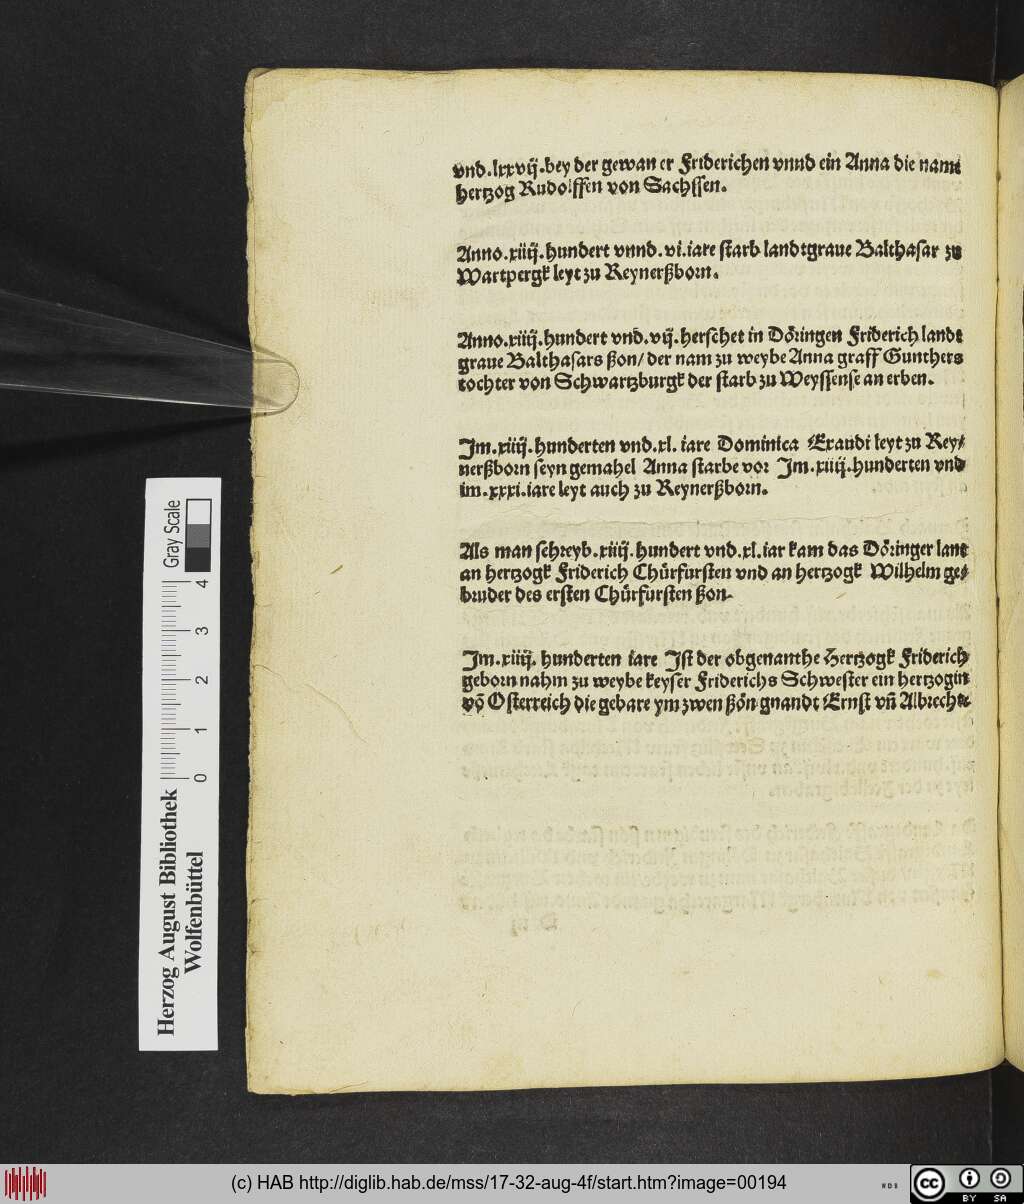 vnd.lxxvij.bey der gewan er Friderichen vnnd ein Anna die nam
hertzog Rudolffen von Sachssen.
Anno.xiiij.hundert vnnd.vi.iare starb landtgraue Balthasar zu
Wartpergk leyt zu Reynerßborn.
Anno.xiiij.hundert vnd.vij.herschet in Döringen Friderich landt
graue Balthasars ßon/ der nam zu weybe Anna graff Gunthers
tochter von Schwartzburgk der starb zu Weyssense an erben.
Jm.xiiij.hunderten vnd.xl. iare Dominica Exaudi leyt zu Rey⸗
nerßborn seyn gemahel Anna starbe vor Jm.xiiij.hunderten vnd
im.xxxi.iare leyt auch zu Reynerßborn.
Als man schreyb.xiiij.hundert vnd.xl.iar kam das Döringer lant
an hertzogk Friderich Chürfursten vnd an hertzogk Wilhelm ge⸗
bruder des ersten Chürfursten ßon.
Jm.xiiij.hunderten iare Jst der obgenanthe Hertzogk Friderich
geborn nahm zu weybe keyser Friderichs Schwester ein hertzogin
vō Osterreich die gebare ym zwen ßön gnandt Ernst vñ Albrecht.
Herzog August Bibliothek
Wolfenbüttel
0 1 2 3 4
Gray Scale
(c) HAB http://diglib.hab.de/mss/17-32-aug-4f/start.htm?image=00194
cc BY SA